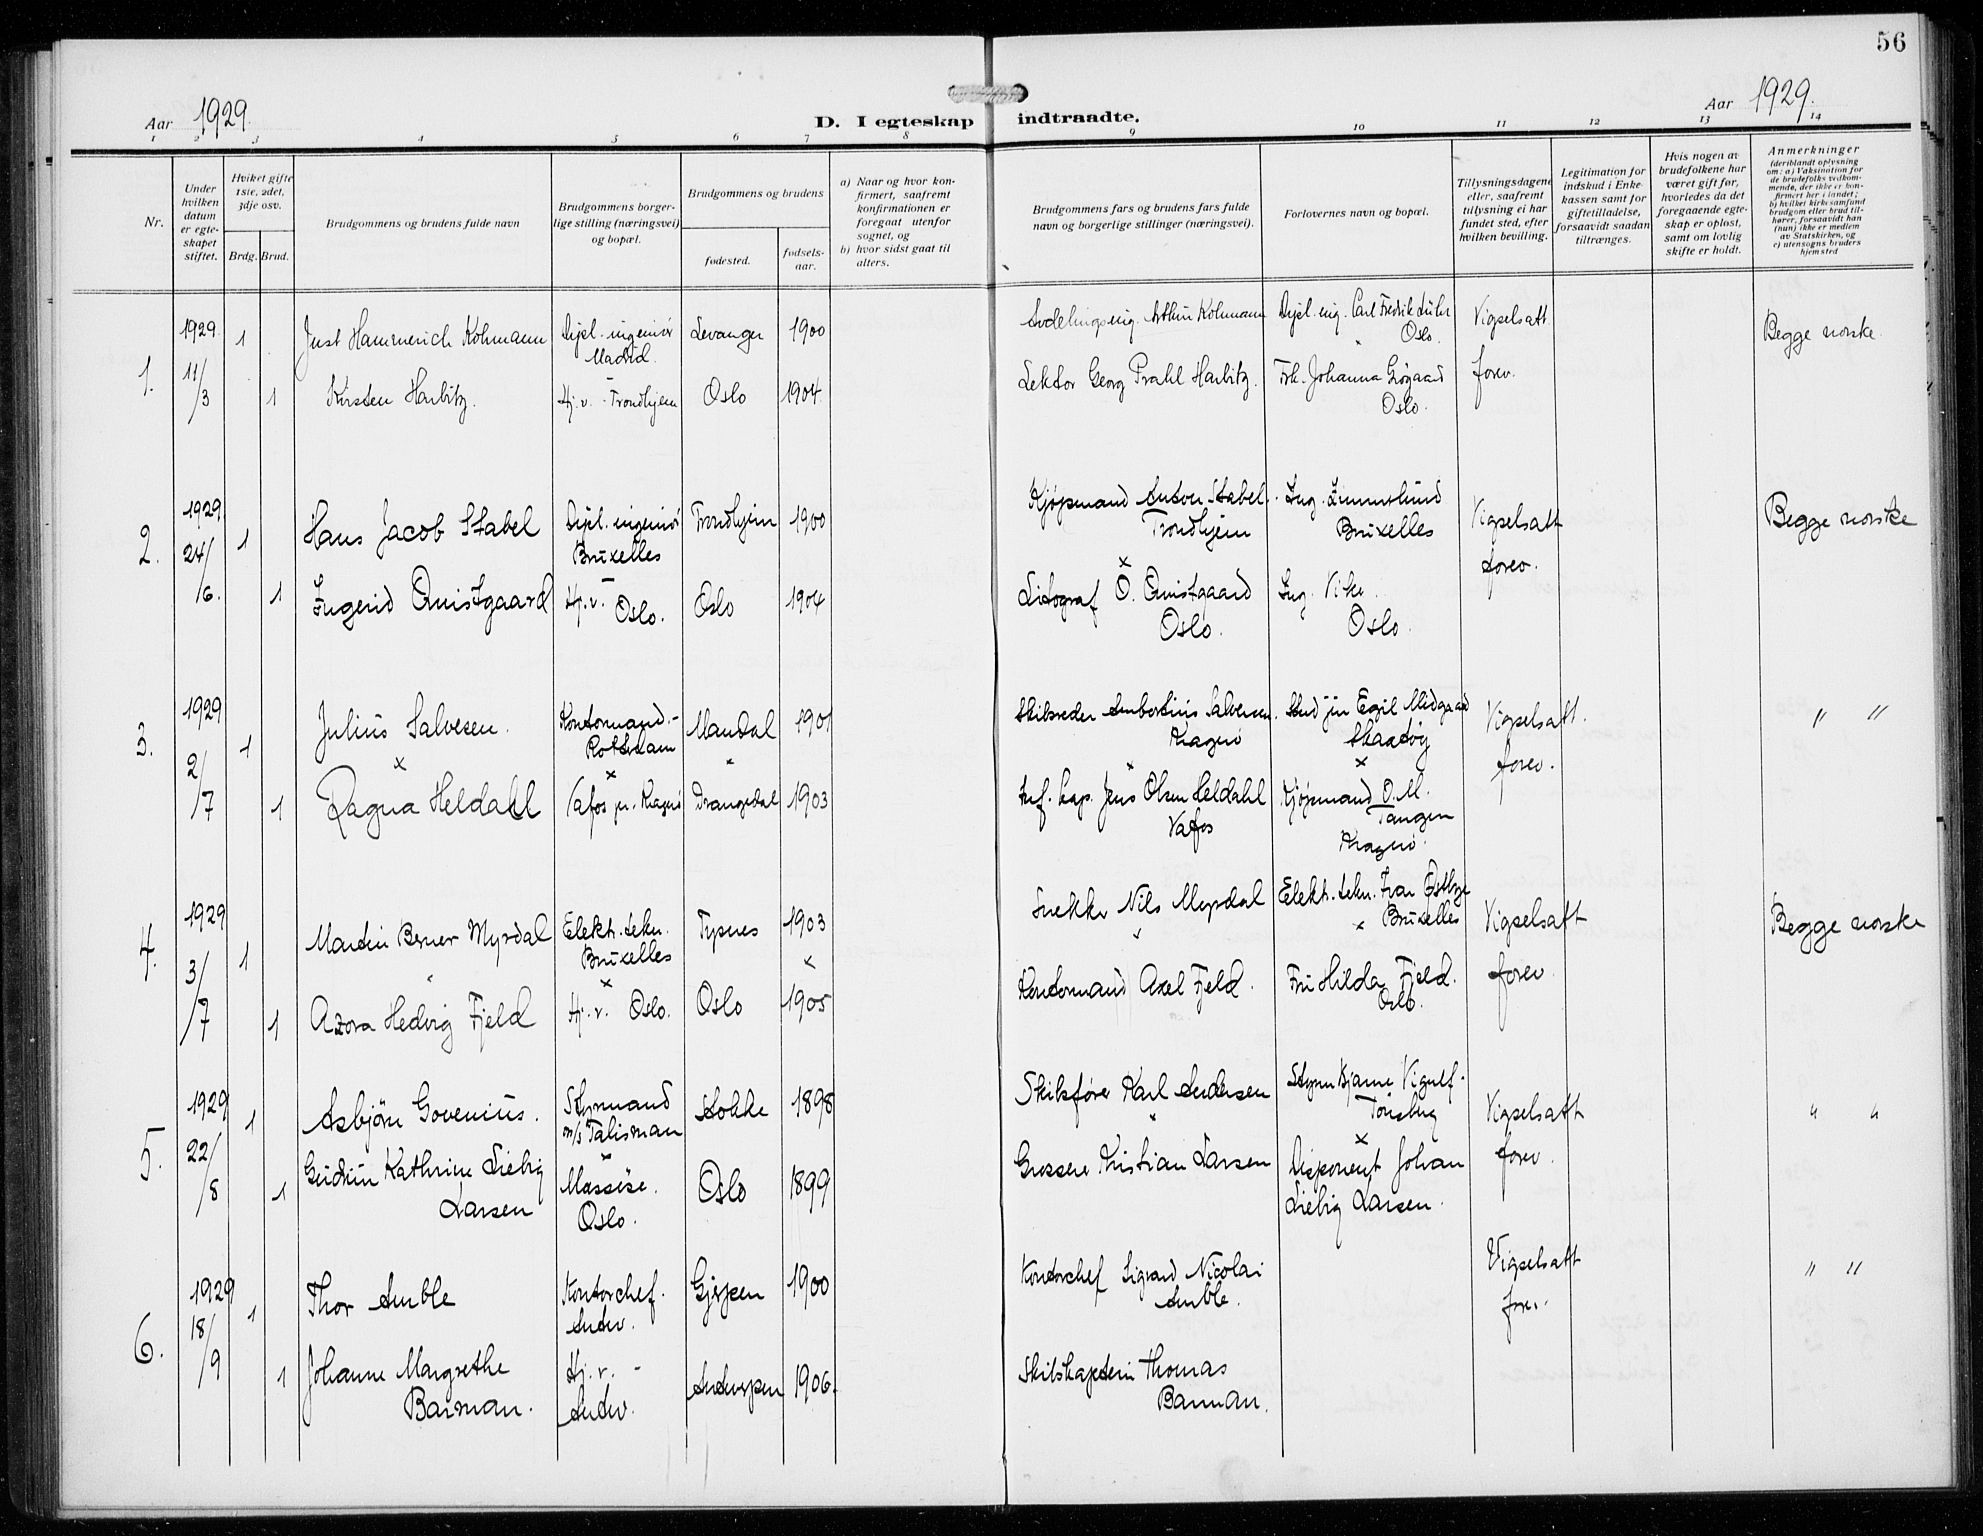 56
Aar 1929.
D. I egteskap indtraadte.
Aar 1929.
1 2 3 4 5 6 7 8 9 10 11 12 13 14
Nr.
Under hvilken datum er egteskapet stiftet.
Hvilket gifte 1ste, 2det, 3dje osv.
Brdg. Brud.
Brudgommens og brudens fulde navn
Brudgommens borgerlige stilling (næringsvei) og bopæl.
Brudgommens og brudens
fødested.
fødselsaar.
a) Naar og hvor konfirmert, saafremt konfirmationen er foregaat utenfor sognet, og
b) hvor sidst gaat til alters.
Brudgommens fars og brudens fars fulde navn og borgerlige stillinger (næringsvei).
Forlovernes navn og bopæl.
Tillysningsdagene eller, saafremt tillysning ei har fundet sted, efter hvilken bevilling.
Legitimation for indskud i Enkekassen samt for giftetilladelse, forsaavidt saadan tiltrænges.
Hvis nogen av brudefolkene har været gift før, hvorledes da det foregaaende egteskap er opløst, samt om lovlig skifte er holdt.
Anmerkninger
(deriblandt oplysning om: a) Vaksination for de brudefolks vedkommende, der ikke er konfirmert her i landet; b) hvilket kirkesamfund brudgom eller brud tilhører, forsaavidt han (hun) ikke er medlem av Statskirken, og c) utensogns bruders hjemsted
1. 1929 11/3 1 Just Hammerich Kohmann Dipl. ingeniør Madrid. Levanger 1900 Avdelingsing. Arthur Kohmann Dipl. ing. Carl Fredrik Oslo. Vigselsatt. Begge norske.
1 Kirsten Harbitz. Hj. v. - Trondhjem Oslo 1904. Lektor Georg Prahl Harbitz. Frk. Johanna Grøgaard Oslo. forev.
2. 1929 24/6. 1 Hans Jacob Stabel Dipl. ingeniør Bruxelles Trondhjem 1900 Kjøpmand Anton Stabel. Trondhjem Ing. Bruxelles Vigselsatt Begge norske
1 Ingerid Quistgaard Hj. v. - Oslo. Oslo 1904 Litograf O. Quistgaard Oslo. Ing. Oslo. forev.
3. 1929 2/7 1 Julius Salvesen. Kontormand. - Rotterdam Mandal 1901 Skibsreder Salvesen. Kragerø Stud jur Egil Midgaard Skaatøy Vigselsatt. " "
x x x x
1 Ragna Heldahl Vafos pr. Kragerø Drangedal 1903 kap. Jens Olsen Heldahl Vafos Kjøpmand O. M. Tangen Kragerø. forev.
4. 1929 3/7 1 Martin Berner Myrdal Elektr. tekn. Bruxelles Tysnes 1903 Snekker Nils Myrdal Elektr. tekn. Østbye Bruxelles Vigselsatt Begge norske
1 Azora Hedvig Fjeld Hj. v. Oslo. Oslo 1905 Kontormand Axel Fjeld. Fru Hilda Fjeld. Oslo. forev
5. 1929 22/8 1 Asbjørn Govenius. Styrmand m/s Talisman Stokke 1898 Skibsfører Karl Andersen Styrm Bjarne Tønsberg Vigselsatt " "
1 Gudrun Kathrine Liebig Larsen Massøse. Oslo. Oslo 1899 Grosserer Kristian Larsen Disponent Johan Liebig Larsen. forev.
6. 1929 18/9 1 Thor Amble Kontorchef. Antw. Gjerpen 1900 Kontorchef Sigvard Nicolai Amble. Vigselsatt forev. " "
1 Johanne Margrethe Barman. Hj. v. - Antw. Antwerpen 1906. Skibskaptein Thomas Barman.